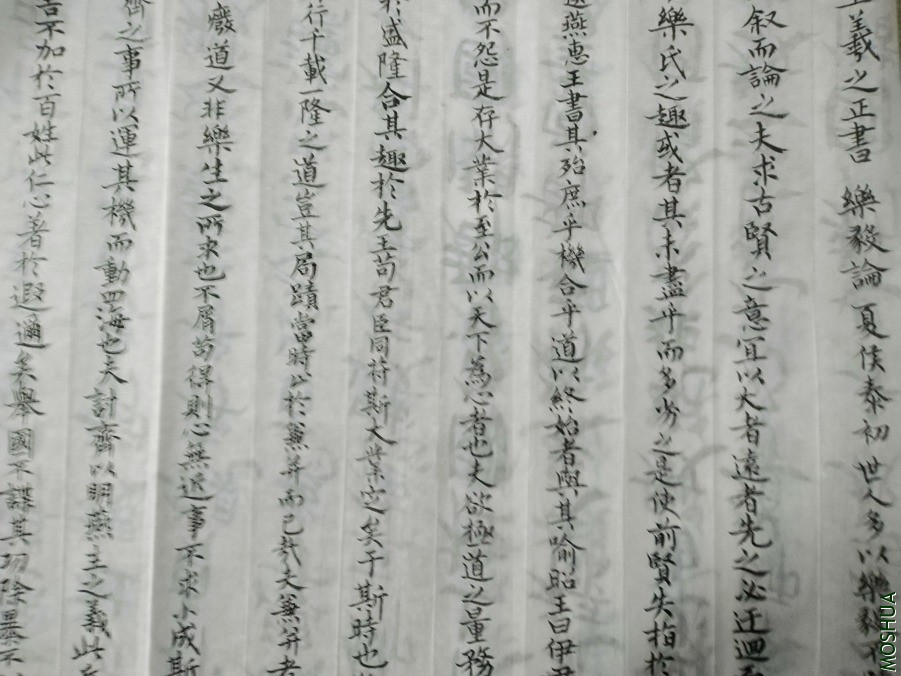 羲之正書 樂毅論 夏侯泰初 世人多以樂毅不
叙而論之夫求古賢之意宜以大者遠者先之必迂迴
樂氏之趣或者其未盡乎而多劣之是使前賢失指於
燕惠王書其殆庶乎機合乎道以終始者與其喻昭王曰伊尹
而不怨是存大業於至公而以天下為心者也夫欲極道之量務
於盛隆合其趣於先王苟君臣同符斯大業定矣于斯時也
行千載一隆之道豈其局蹟當時止於兼并而已哉夫兼并者
廢道又非樂生之所求也不屑苟得則心無近事不求小成斯
齊之事所以運其機而動四海也夫討齊以明燕主之義此
害不加於百姓此仁心著於遐邇矣舉國不謀其功除暴不
MOSHUA